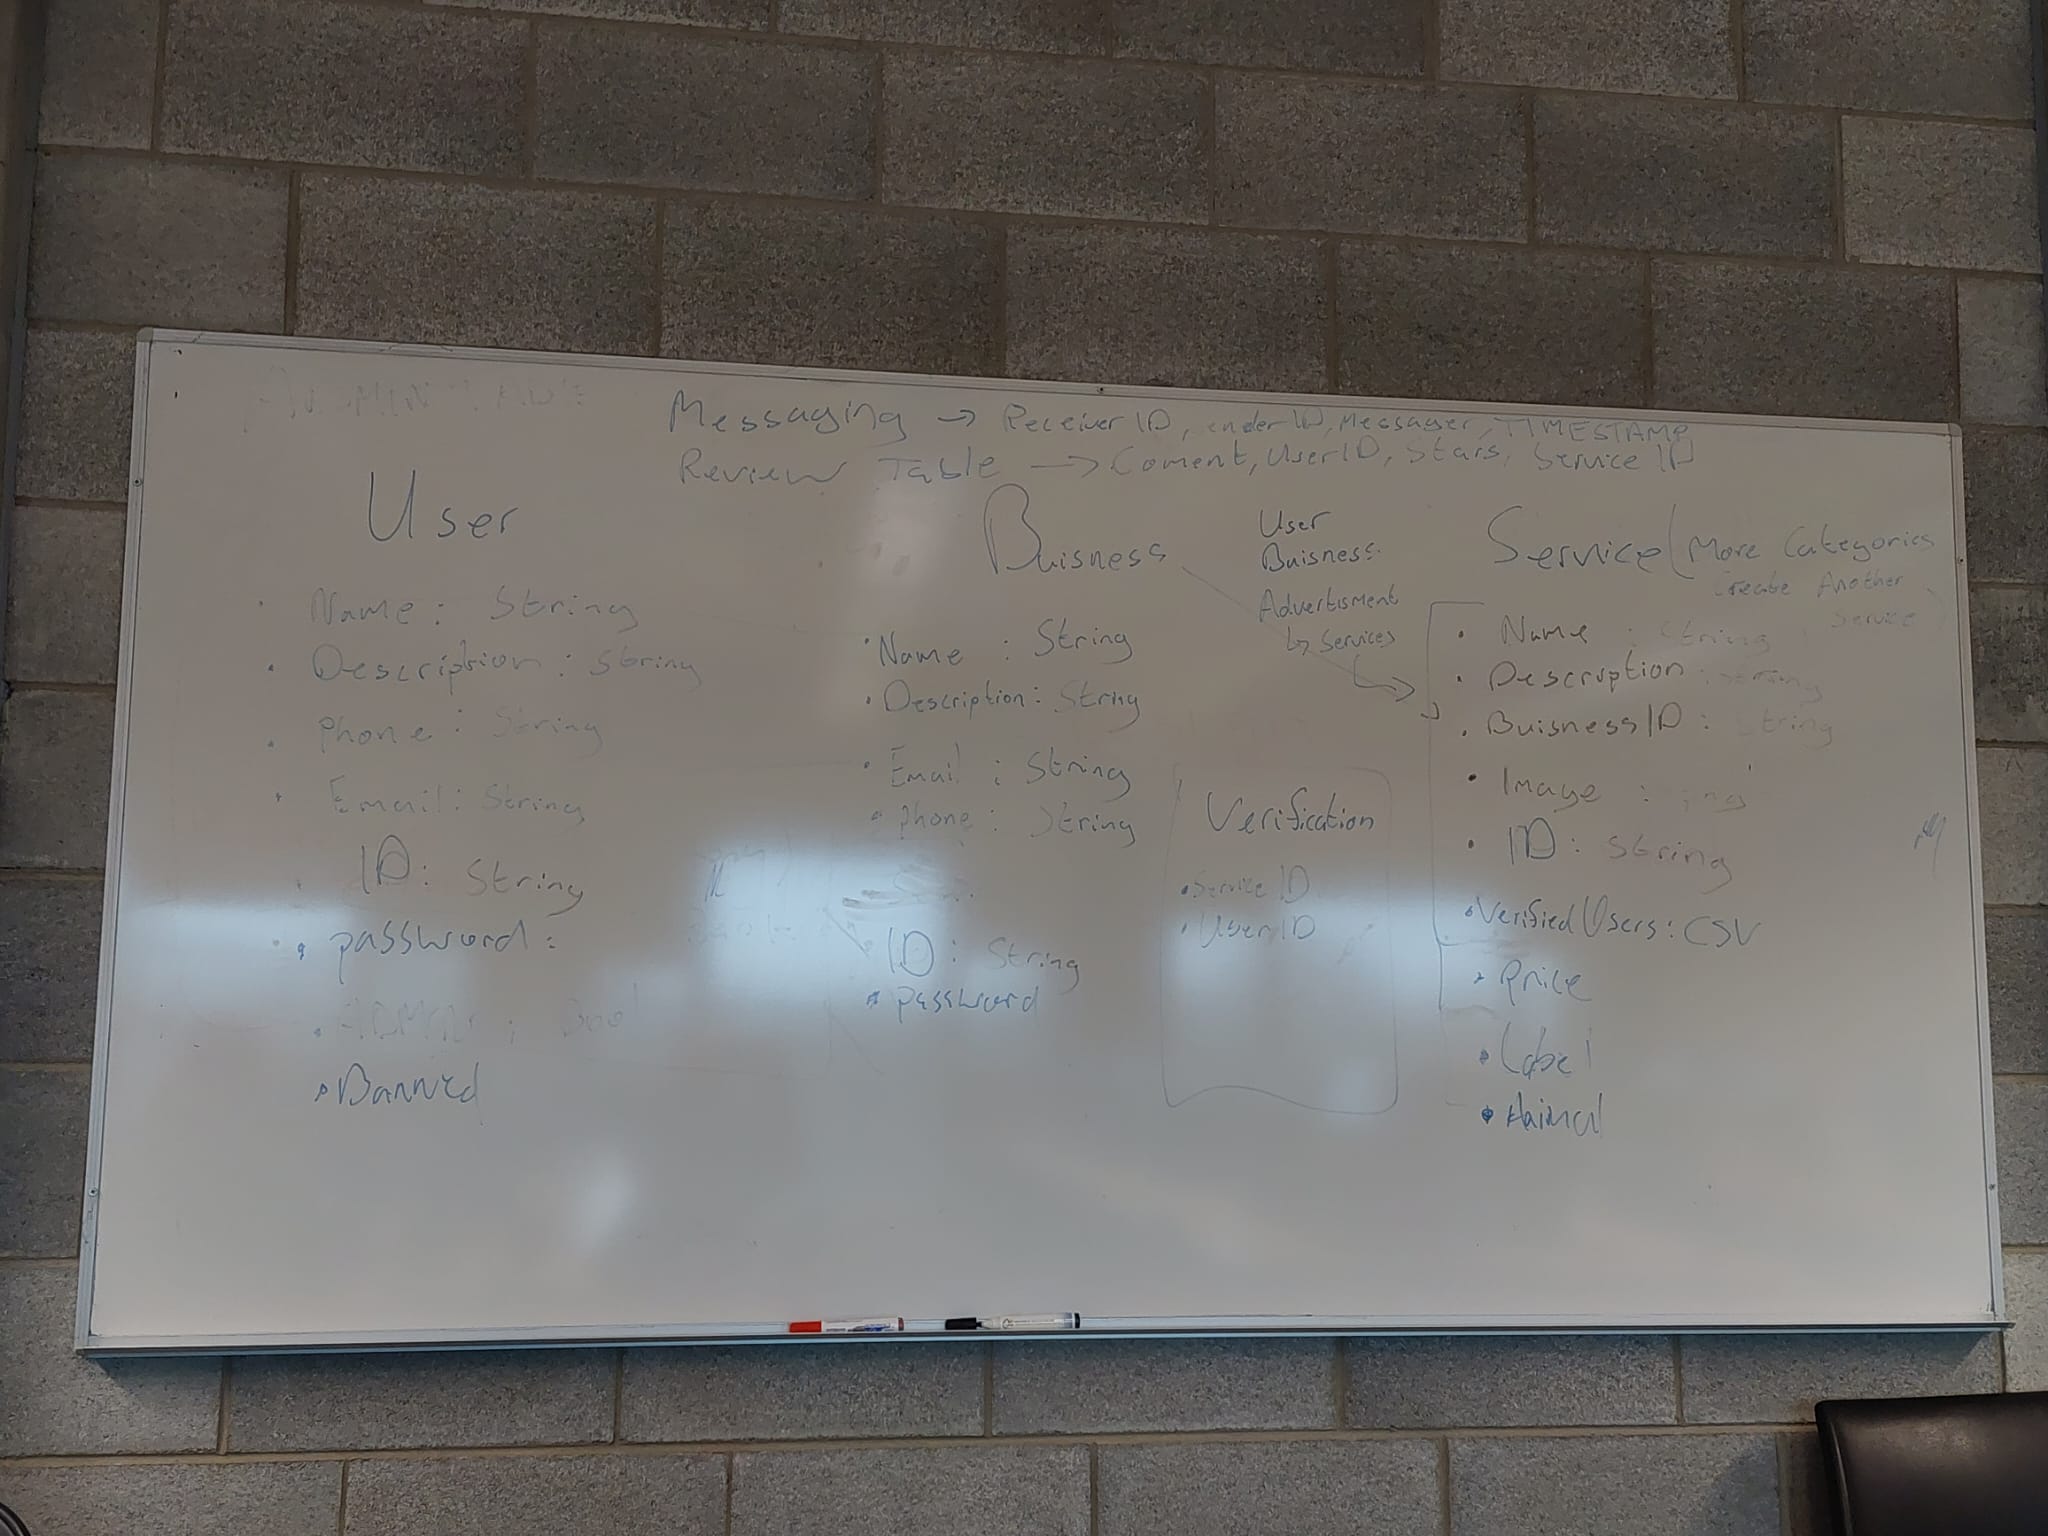 Messaging → ReceiverID, enderID, Messager, TIMESTAMP
Review Table → Coment, UserID, Stars, Service ID
User
Name : String
• Description : String
• Phone : String
• Email : String
ID : String
• password :
• ADMIN : Bool
• Banned
Buisness
• Name : String
• Description : String
• Email : String
• Phone : String
ID : String
• password
User
Buisness
Advertisment
↳ Services
Verification
• Service ID
• User ID
Service (More Categories
Create Another
Service
• Name : String
• Description : String
• BuisnessID : String
• Image :
• ID : String
• Verified Users : CSV
• Price
• Label